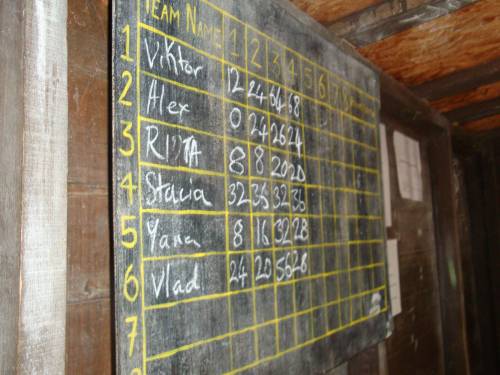 TEAM NAME 1 2 3 4 5 6
1 Viktor 12 24 64 68
2 Alex 0 24 26 24
3 8 8 20 20
4 Stacia 32 36 32 36
5 Yana 8 16 32 28
6 Vlad 24 20 56 28
7